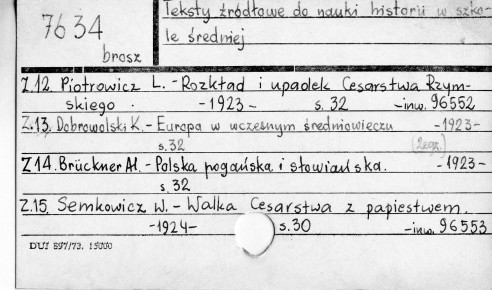 7634
brosz
Teksty źródłowe do nauki historii w szko-
le średniej
Z.12. Piotrowicz L. - Rozkład i upadek Cesarstwa Rzym-
skiego. - 1923 - s. 32 - inw. 96552
Z.13. Dobrowolski K. - Europa w wczesnym średniowieczu - 1923 -
s. 32 (2egz.)
Z 14. Brückner Al. - Polska pogańska i słowiańska. - 1923 -
s. 32
Z.15. Semkowicz W. - Walka Cesarstwa z papiestwem.
- 1924 - s. 30 - inw. 96553
DUJ 597/73. 15000